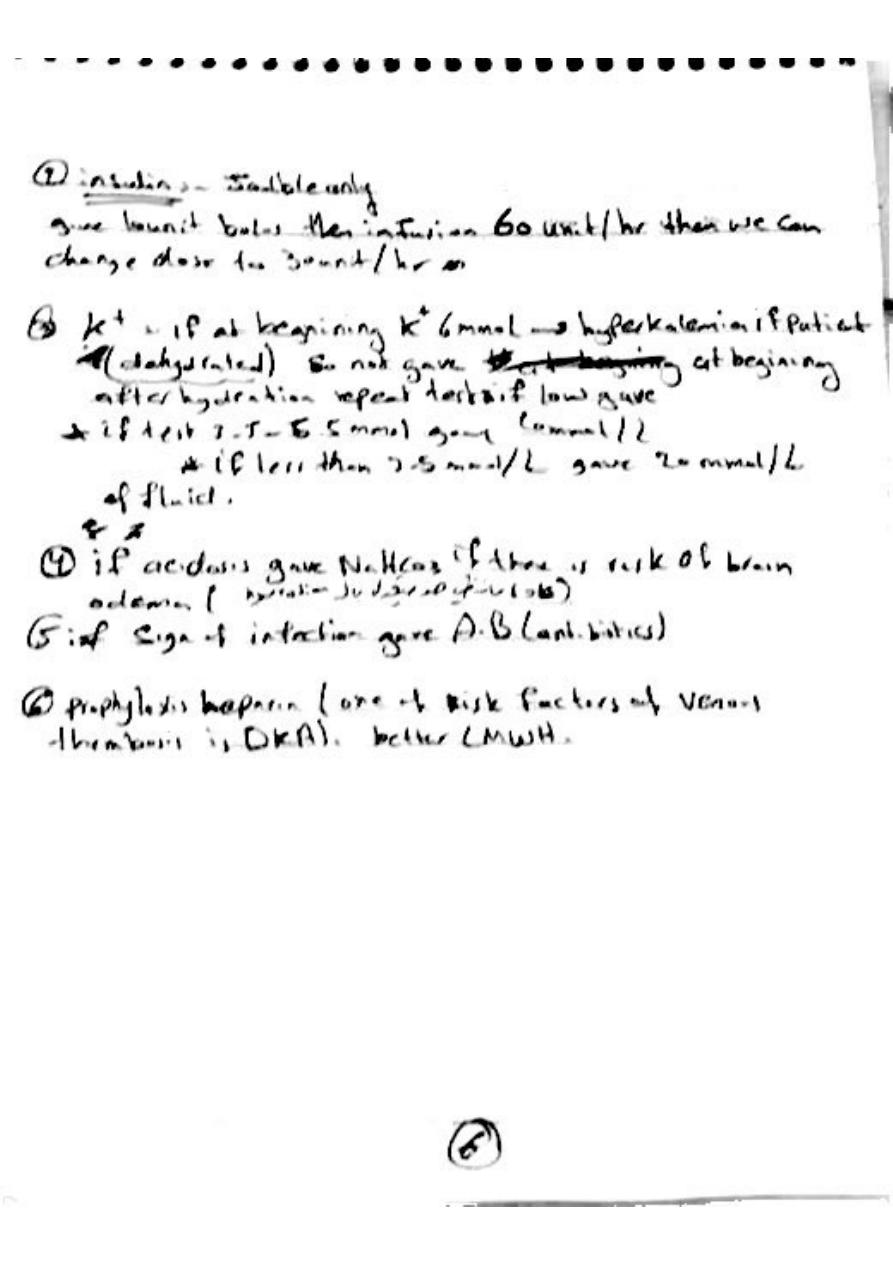 ② insulin :- Soluble only
give bolus then infusion 60 unit/hr then we can
change dose to 30unit/hr
③ K+ - if at beagining K+ 6mmol → hyperkalemia if Patient
(dehydrated) so not gave at begining
after hydration repeat test if low gave
* if test 3.5-5.5 mmol gave mmol/L
* if less than 3.5 mmol/L gave 20 mmol/L
of fluid.
④ if acidosis gave NaHCo3 if there is risk of brain
odema (
⑤ if Sign of infection gave A.B (antibiotics)
⑥ Prophylaxis heparin (one of Risk factors of venous
thrombosis is DKA). better LMWH.
6